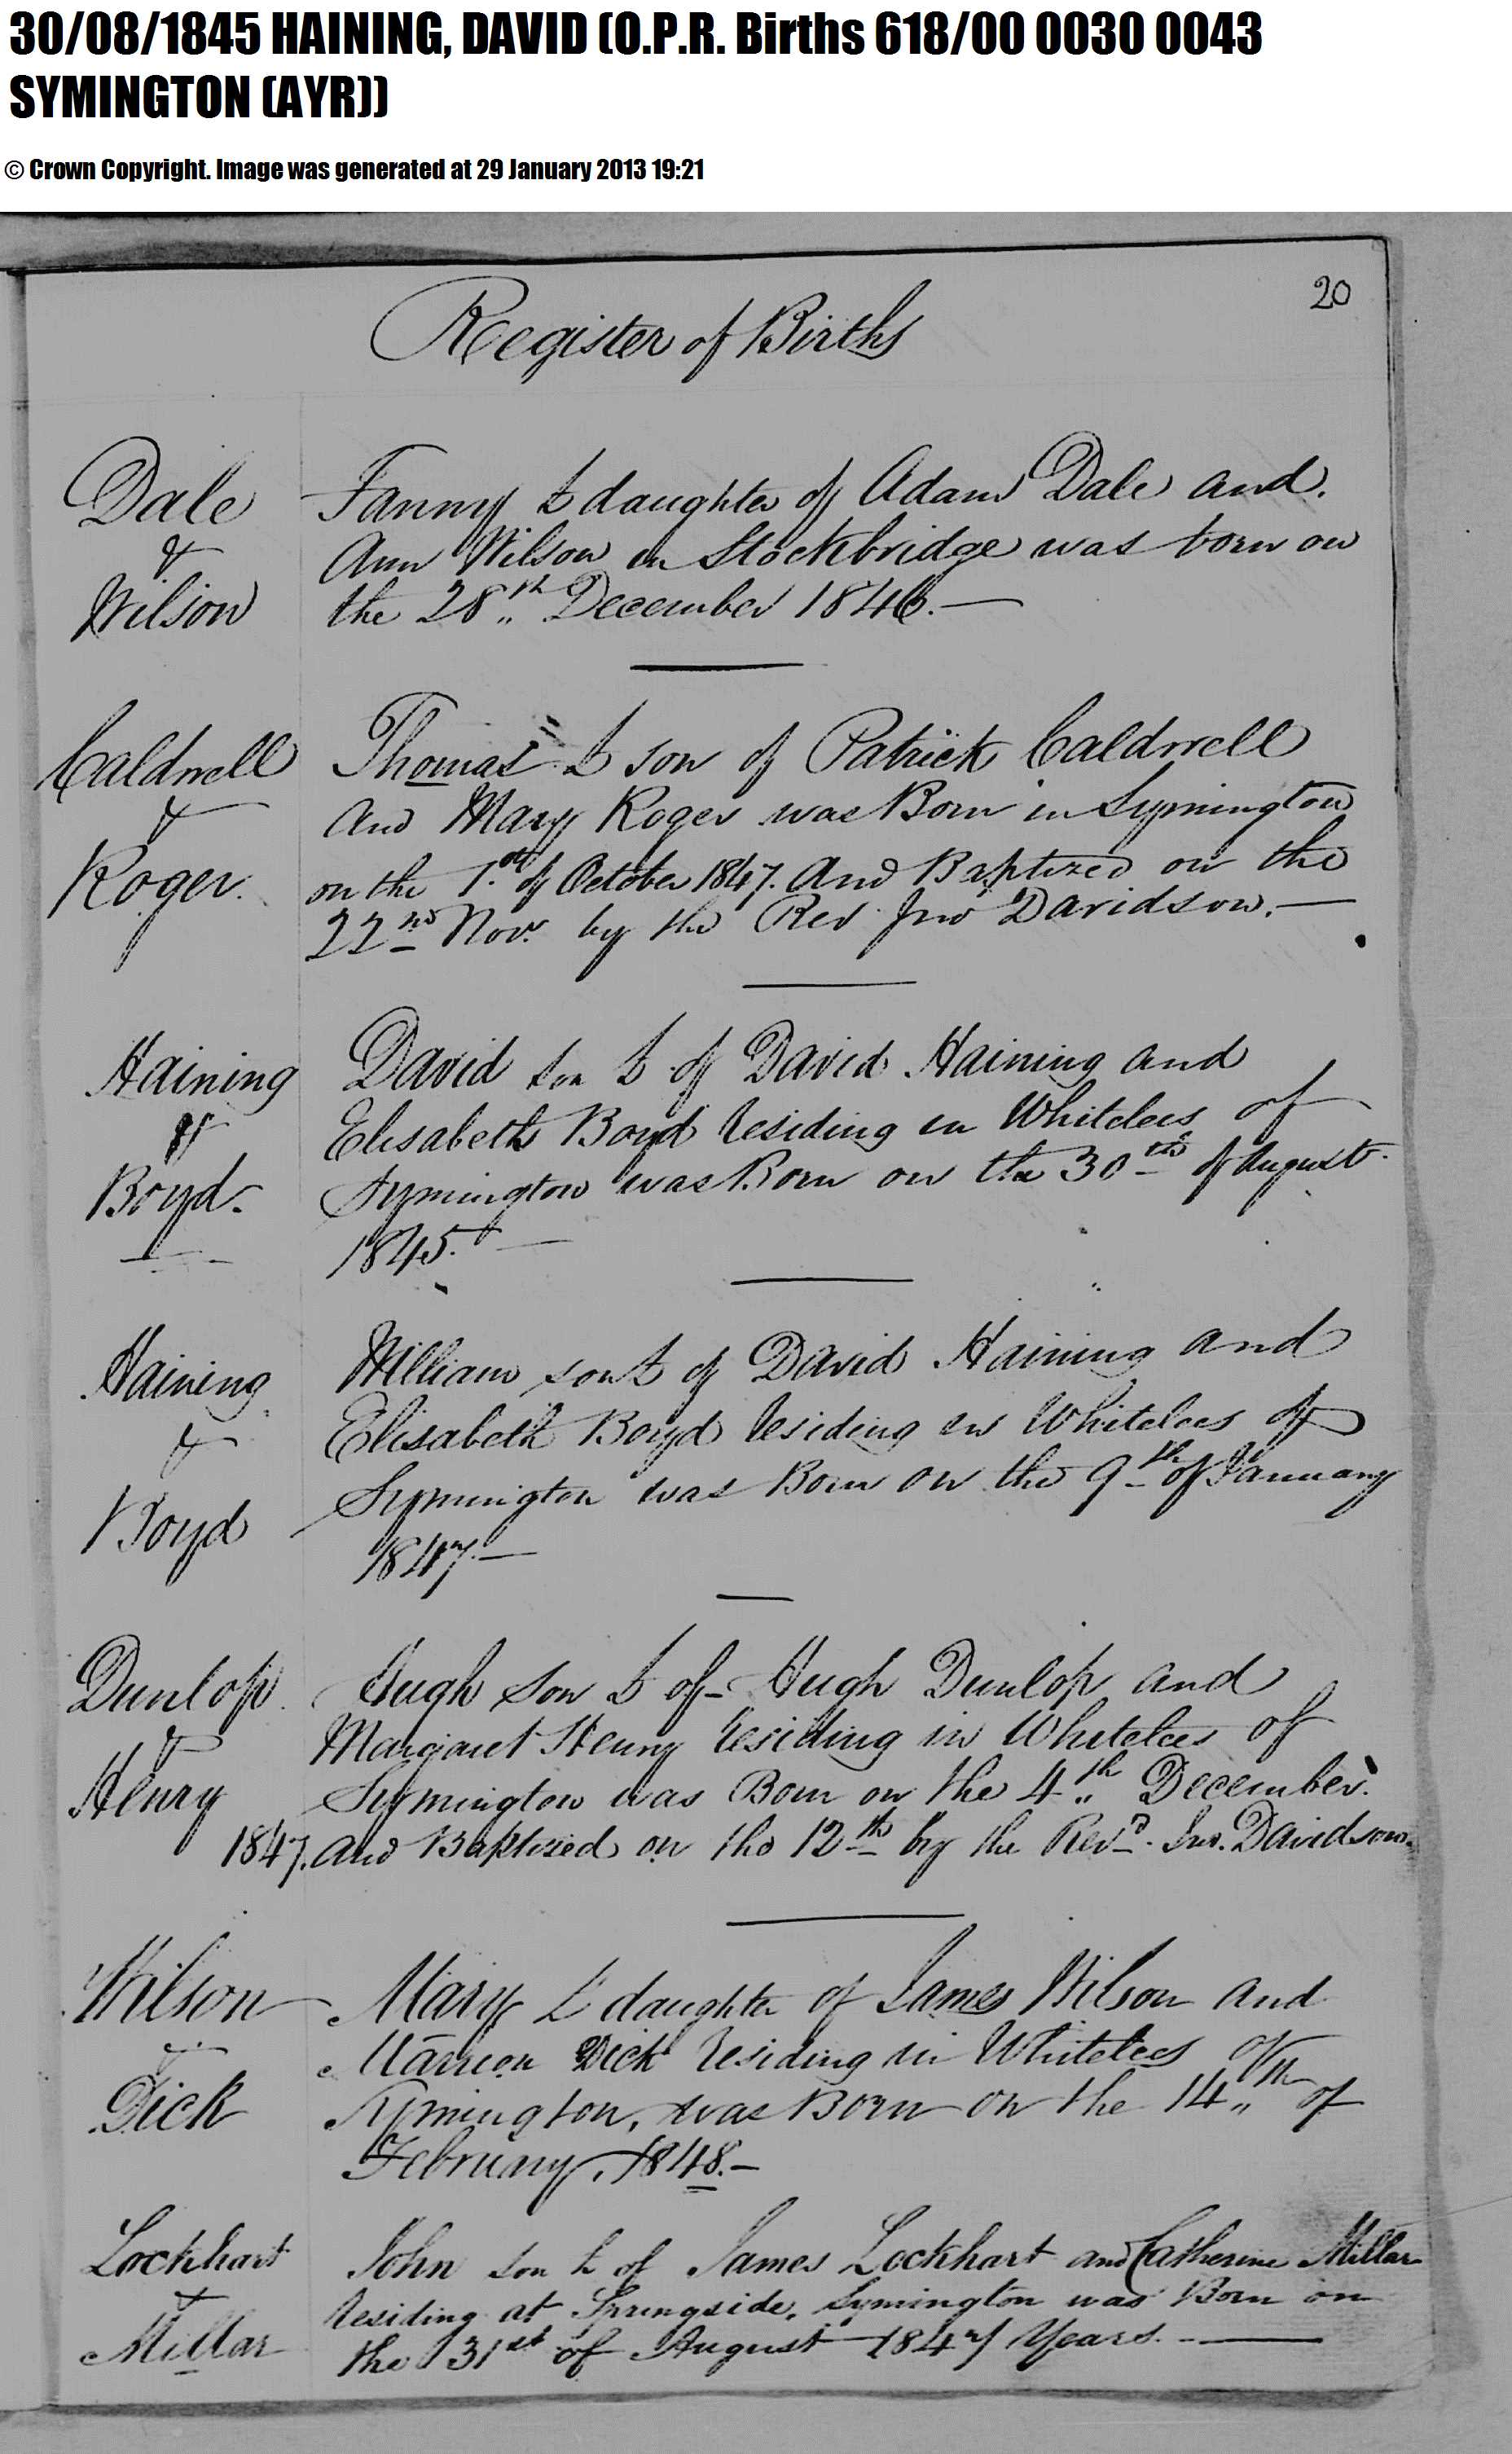 30/08/1845 HAINING, DAVID (O.P.R. Births 618/00 0030 0043
SYMINGTON (AYR))
© Crown Copyright. Image was generated at 29 January 2013 19:21
20
Register of Births
Dale
&
Wilson
Fanny L daughter of Adam Dale and.
Ann Wilson in Stockbridge was born on
the 28th December 1846.—
Caldwell
&
Roger.
Thomas L son of Patrick Caldwell
and Mary Roger was Born in Symington
on the 1.st of October 1847. And Baptized on the
22nd Nov. by the Rev Jno Davidson.—
Haining
&
Boyd.
David son L of David Haining and
Elisabeth Boyd residing in Whitelees of
Symington was Born on the 30th of August
1845.—
Haining
&
Boyd
William son L of David Haining and
Elisabeth Boyd residing in Whitelees of
Symington was Born on the 9th of January
1847.—
Dunlop
&
Henry
Hugh son L of Hugh Dunlop and
Margaret Henry residing in Whitelees of
Symington was Born on the 4th December.
1847. and Baptized on the 12th by the Revd. Jno. Davidson.
Wilson
&
Dick
Mary L daughter of James Wilson and
Marrion Dick residing in Whitelees of
Symington, was Born on the 14th of
February, 1848.—
Lockhart
&
Millar
John son L of James Lockhart and Catherine Millar
residing at Springside, Symington was Born on
the 31st of August 1847 Years.—